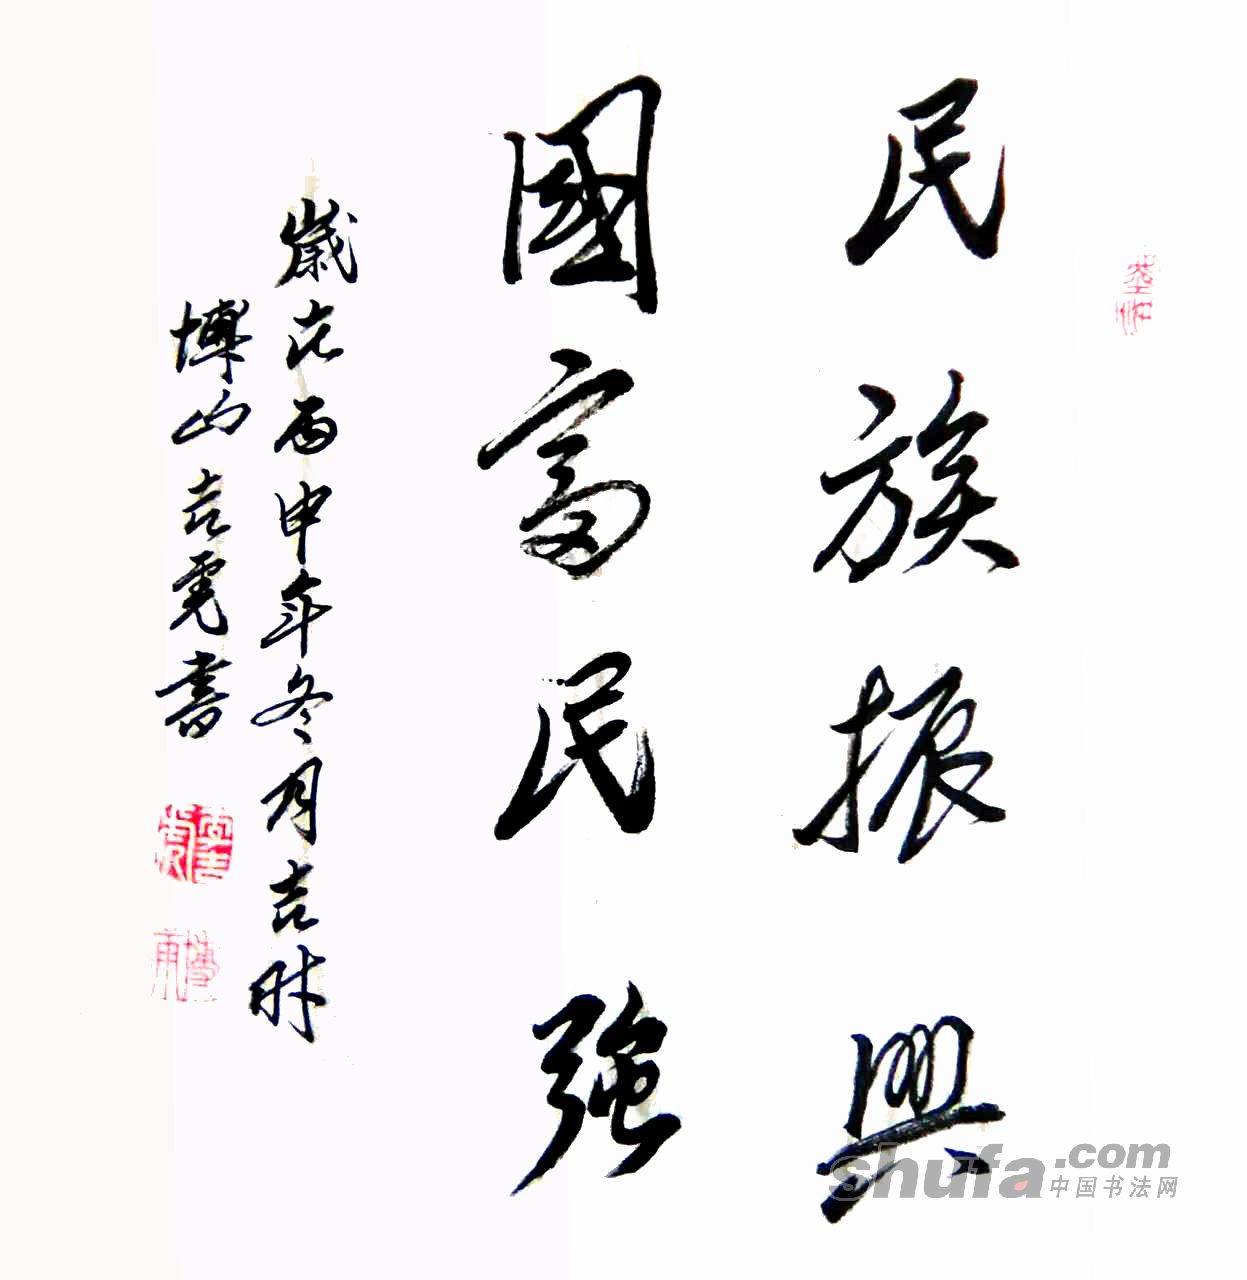 民族振興
國富民強
歲次丙申年冬月吉时
博山吉雲書
shufa.com
中国书法网